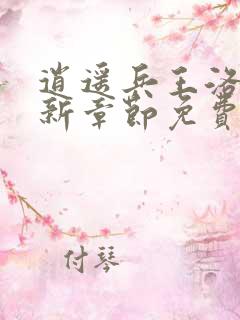 逍遥兵王洛
新章节免费
付琴